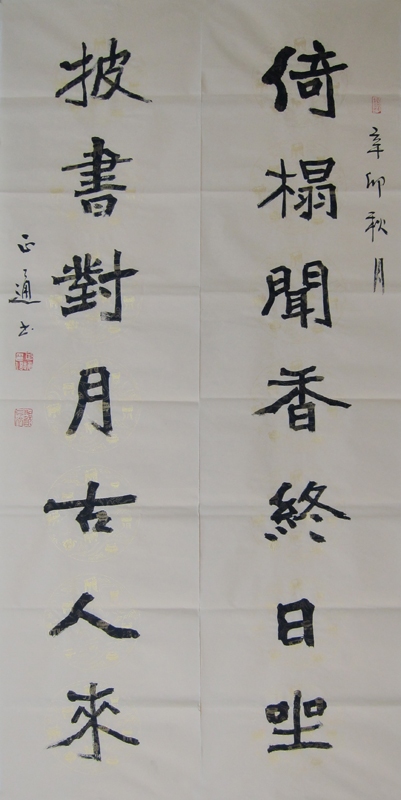 辛卯秋月
倚榻聞香終日坐
披書對月古人來
正通书